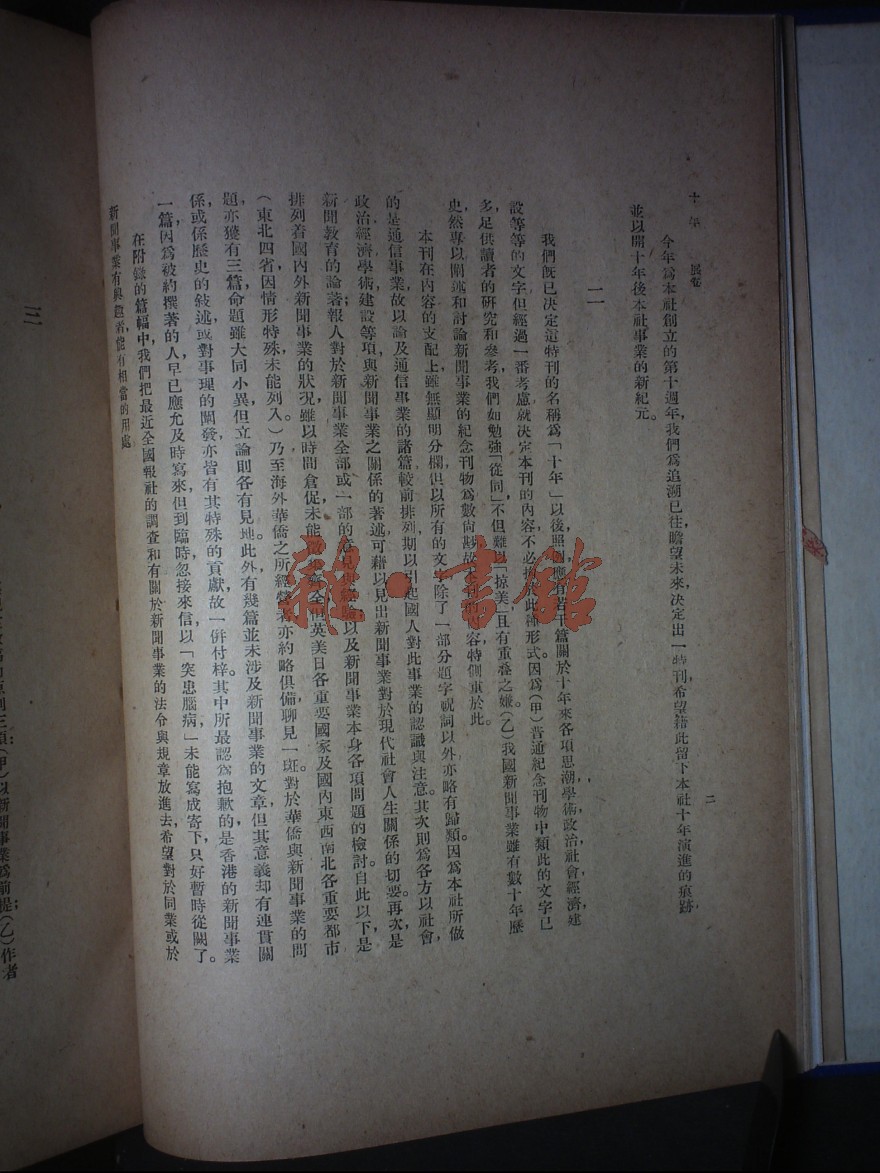 十年 展卷
二
今年爲本社創立的第十週年，我們爲追溯已往瞻望未來，决定出一特刊，希望藉此留下本社十年演進的痕跡，
並以開十年後本社事業的新紀元。
二
我們旣已决定這特刊的名稱爲「十年」以後，照例應有若干篇關於十年來各項思潮，學術，政治，社會，經濟建
設等等的文字，但經過一番考慮，就决定本刊的內容不必拘於此種形式。因爲（甲）普通紀念刊物中類此的文字已
多，足供讀者的研究和參考，我們如勉強「從同」，不但難以「掠美」，且有重叠之嫌。（乙）我國新聞事業雖有數十年歷
史，然專以闡述和討論新聞事業的紀念刊物，爲數尙尠，故本刊內容特側重於此。
本刊在內容的支配上，雖無顯明分欄，但以所有的文，除了一部分題字祝詞以外，亦略有歸類。因爲本社所做
的是通信事業，故以論及通信事業的諸篇較前排列，期以引起國人對此事業的認識與注意。其次則爲各方以社會，
政治，經濟，學術，建設等項與新聞事業之關係的著述，可藉以見出新聞事業對於現代社會人生關係的切要。再次是
新聞敎育的論著，報人對於新聞事業全部或一部的意見與經驗，以及新聞事業本身各項問題的檢討。自此以下，是
排列着國內外新聞事業的狀况，雖以時間倉促，未能 齊全，但英美日各重要國家及國內東西南北各重要都市
（東北四省因情形特殊，未能列入。）乃至海外華僑之所經營者，亦約略俱備，聊見一斑。對於華僑與新聞事業的問
題，亦獲有三篇，命題雖大同小異，但立論則各有見地。此外有幾篇並未涉及新聞事業的文章，但其意義却有連貫關
係，或係歷史的敍述，或對事理的闡發，亦皆有其特殊的貢獻，故一併付梓。其中所最認爲抱歉的，是香港的新聞事業
一篇，因爲被約撰著的人早已應允及時寫來，但到臨時忽接來信以「突患腦病」，未能寫成寄下，只好暫時從闕了。
在附錄的篇幅中，我們把最近全國報社的調查和有關於新聞事業的法令與規章放進去，希望對於同業或於
新聞事業有興趣者，能有相當的用處。
三
原則三項：（甲）以新聞事業爲前提；（乙）作者
雜·書館